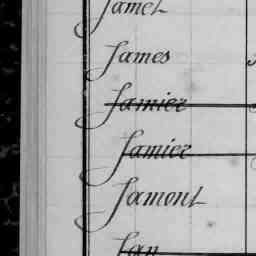 Jamet
James
Jamier
Jamier
Jamont
Jan